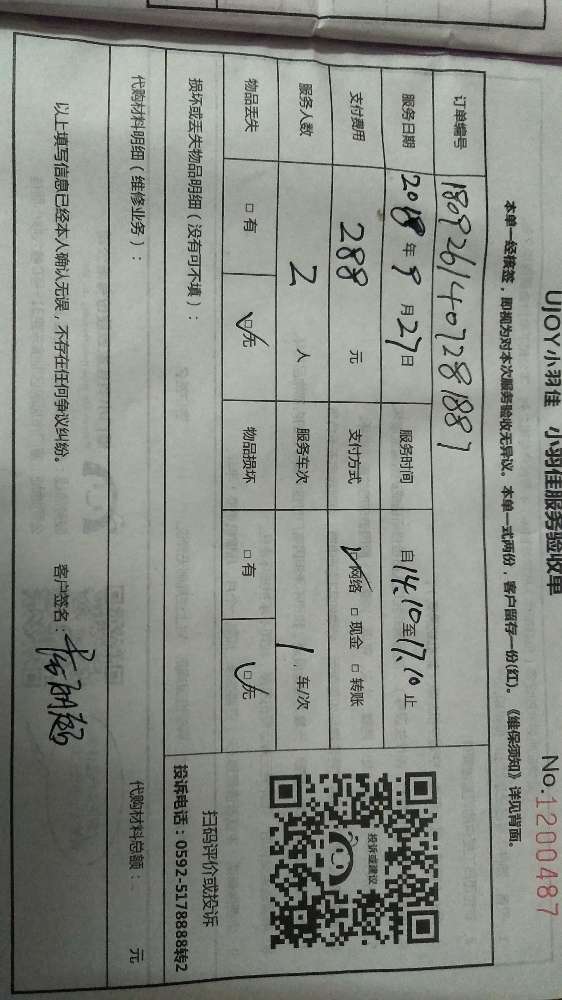 UJOY小羽佳 小羽佳服务验收单 No.1200487
本单一经核签，即视为对本次服务验收无异议。本单一式两份，客户留存一份(红)。《维保须知》详见背面。
订单编号 1809261407281887
服务日期 2018年9月27日 服务时间 自14.10至17.10止
支付费用 288 元 支付方式 ☑网络 □现金 □转账
服务人数 2 人 服务车次 1 车/次
物品丢失 □有 ☑无 物品损坏 □有 ☑无
损坏或丢失物品明细（没有可不填）：
投诉或建议
扫码评价或投诉
投诉电话：0592-5178888转2
代购材料明细（维修业务）： 代购材料总额： 元
以上填写信息已经本人确认无误，不存在任何争议纠纷。 客户签名：